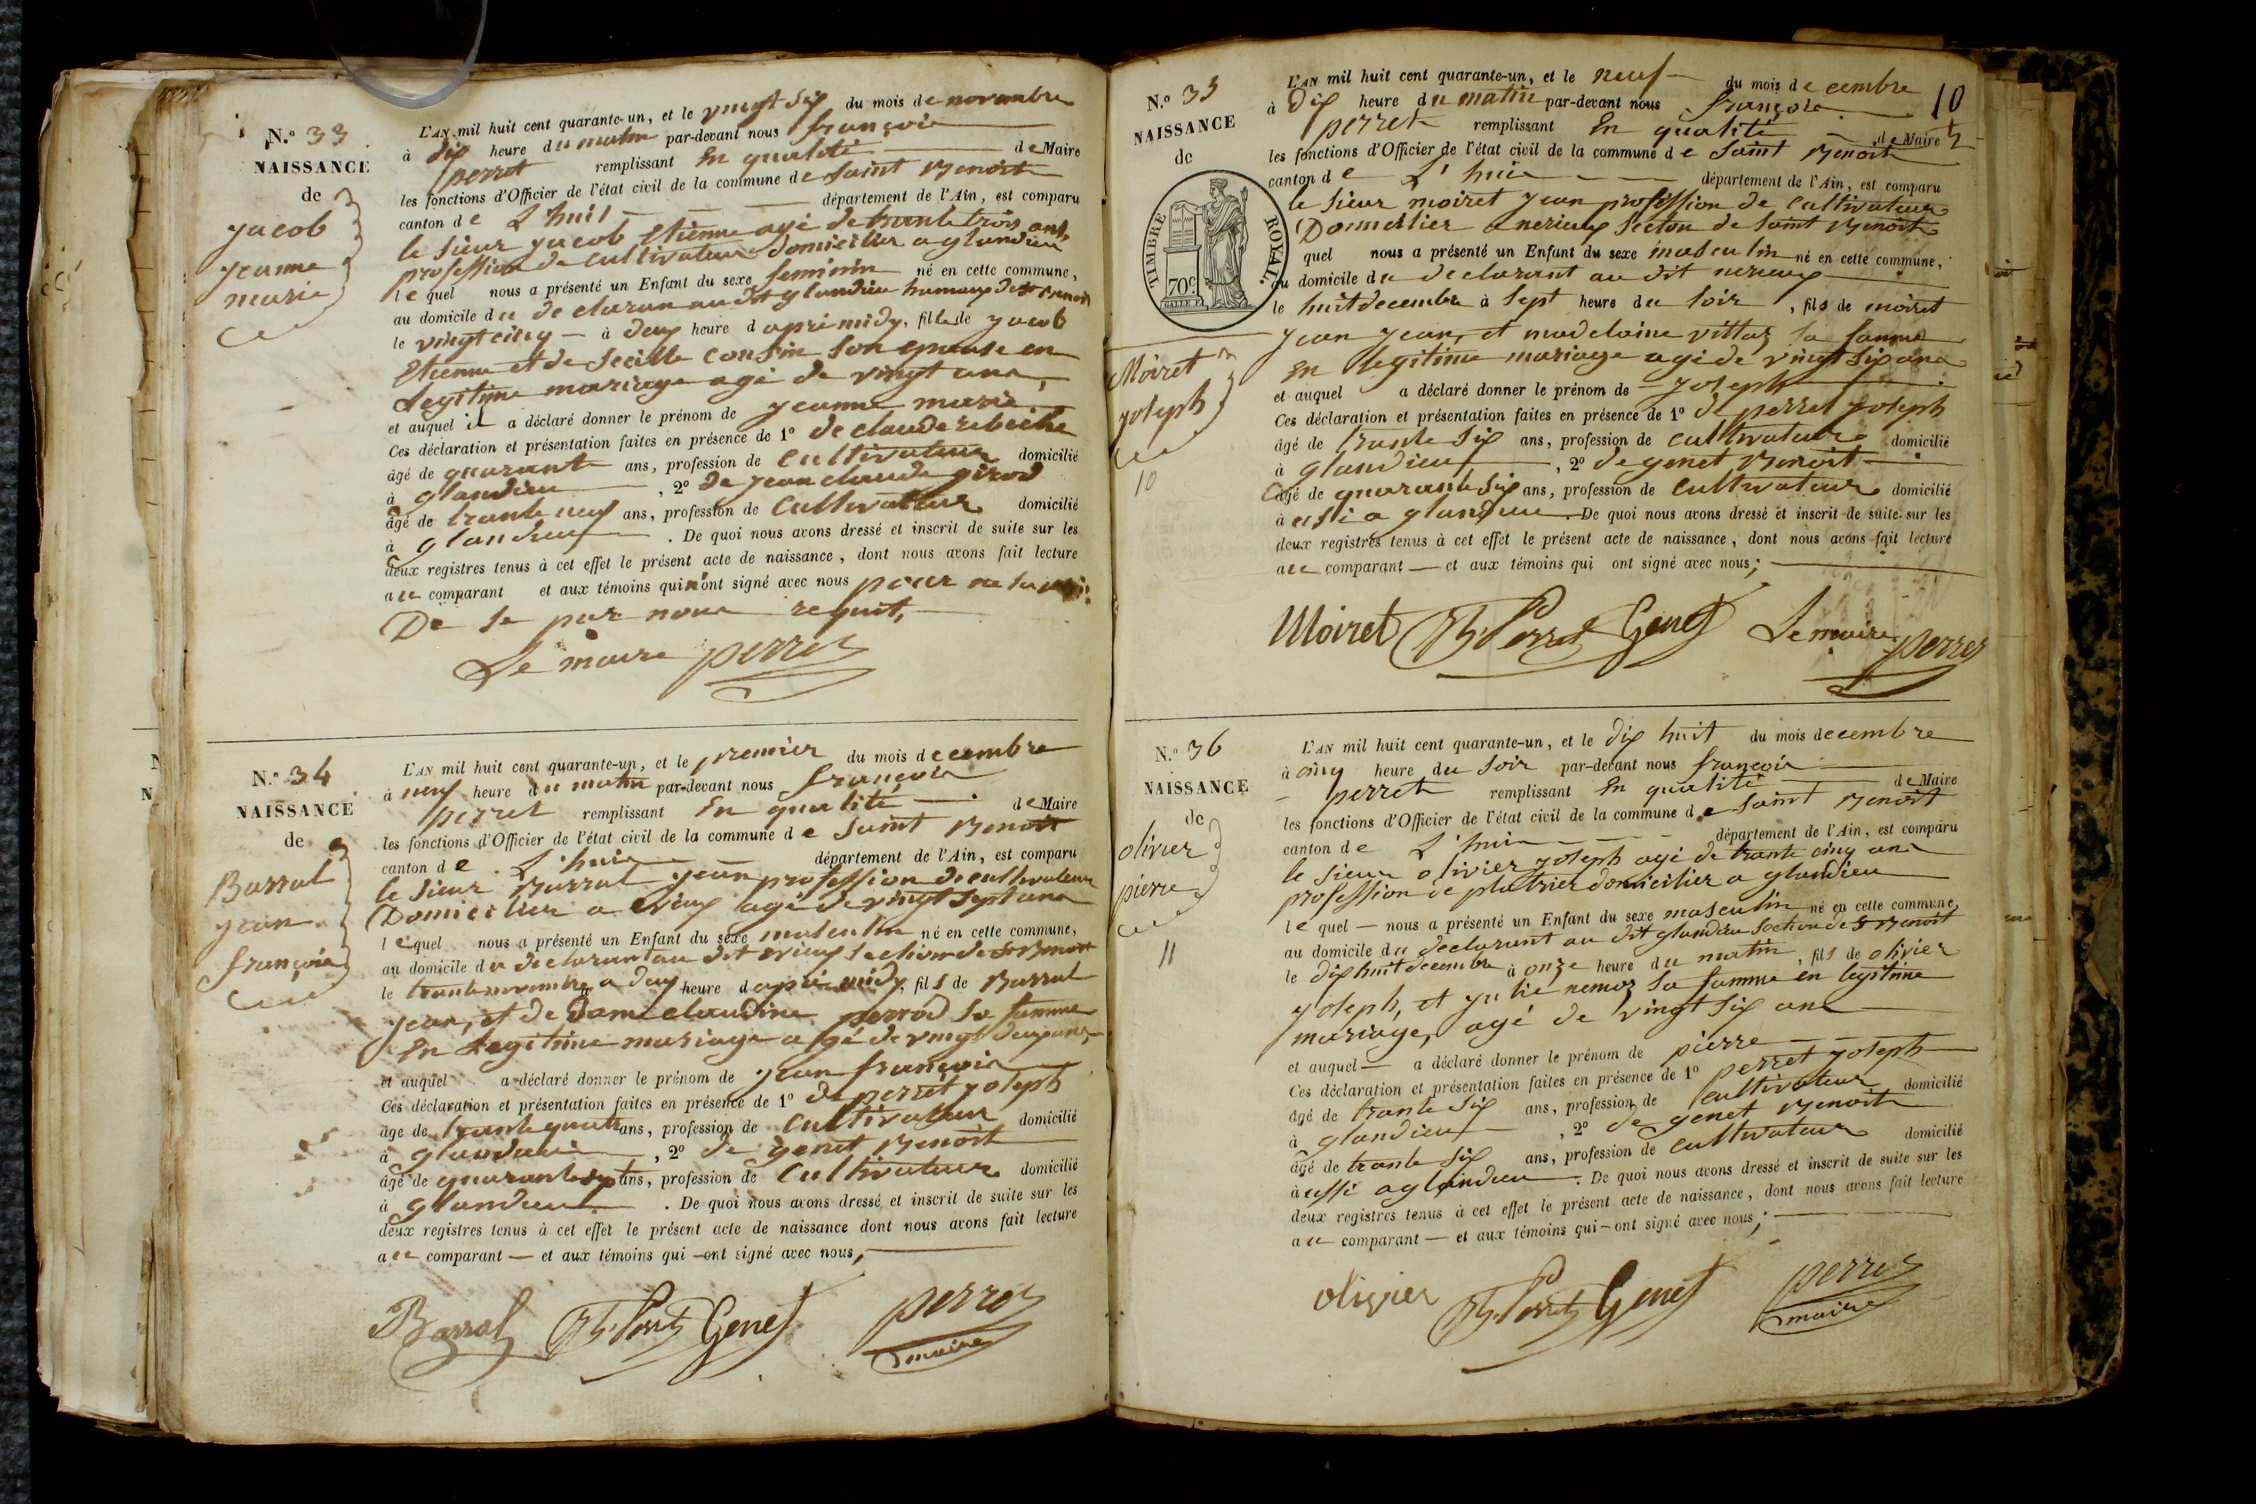 N.º 33
NAISSANCE
de
jacob
jeanne
marie
L'AN mil huit cent quarante-un, et le vingt six du mois de novembre
à dix heure du matin par-devant nous françois
perret remplissant En qualité de Maire
les fonctions d'Officier de l'état civil de la commune de saint Benoit
canton de L'huis département de l'Ain, est comparu
le sieur jacob etienne agé de trante trois ans,
profession de cultivateur domicilier a glandieu
lequel nous a présenté un Enfant du sexe feminin né en cette commune,
au domicile du declaran au dit glandieu hamaux de st Benoit
le vingt cinq à deux heure d apré midy, fille de jacob
Etienne et de Secille consin son epouse en
Legitime mariage agé de vingt ans,
et auquel il a déclaré donner le prénom de jeanne marie
Ces déclaration et présentation faites en présence de 1º de claude
âgé de quarante ans, profession de cultivateur domicilié
à glandieu, 2º de jean claude girod
âgé de trante neuf ans, profession de Cultivateur domicilié
à glandieu. De quoi nous avons dressé et inscrit de suite sur les
deux registres tenus à cet effet le présent acte de naissance, dont nous avons fait lecture
au comparant et aux témoins qui n'ont signé avec nous pour ne
De se par nous requit,
Le maire perret
N.º 34
NAISSANCE
de
Barral
jean
françois
L'AN mil huit cent quarante-un, et le premier du mois decembre
à neuf heure du matin par-devant nous françois
perret remplissant En qualité de Maire
les fonctions d'Officier de l'état civil de la commune de saint Benoit
canton de L'huis département de l'Ain, est comparu
le sieur Barral jean profession de cultivateur
Domicilier a evieux agé de vingt sept ans
lequel nous a présenté un Enfant du sexe masculin né en cette commune,
au domicile du declarant au dit evieux section de st Benoit
le trante novembre a deux heure d apré midy, fils de Barral
jean, et de Dame claudine perrod sa famme
En Legitime mariage agé de vingt deux ans,
et auquel a déclaré donner le prénom de jean françois
Ces déclaration et présentation faites en présence de 1º de perret joseph
âgé de trante quatr ans, profession de Cultivateur domicilié
à glandieu, 2º de genet Benoit
âgé de quarante sept ans, profession de Cultivateur domicilié
à glandieu. De quoi nous avons dressé et inscrit de suite sur les
deux registres tenus à cet effet le présent acte de naissance dont nous avons fait lecture
au comparant et aux témoins qui ont signé avec nous,
Barral Perret Genet perret
maire
10
N.º 35
NAISSANCE
de
TIMBRE ROYAL.
70c.
Moiret
joseph
10
L'AN mil huit cent quarante-un, et le neuf du mois decembre
à Dix heure du matin par-devant nous françois
perret remplissant En qualité de Maire
les fonctions d'Officier de l'état civil de la commune de Saint Benoit
canton de L'huis département de l'Ain, est comparu
le sieur moiret jean profession de cultivateur
Domicilier a nerieux section de saint Benoit
quel nous a présenté un Enfant du sexe masculin né en cette commune,
au domicile du declarant au dit nerieux
le huit decembre à sept heure du soir, fils de moiret
jean jean, et madelaine vittoz sa famme
En legitime mariage agé de vingt six ans
et auquel a déclaré donner le prénom de joseph
Ces déclaration et présentation faites en présence de 1º de perret joseph
âgé de trante six ans, profession de cultivateur domicilié
à glandieu, 2º de genet Benoit
âgé de quarante six ans, profession de Cultivateur domicilié
à usi a glandieu. De quoi nous avons dressé et inscrit de suite sur les
deux registres tenus à cet effet le présent acte de naissance, dont nous avons fait lecture
au comparant et aux témoins qui ont signé avec nous;
Moiret Perret Genet Le maire perret
N.º 36
NAISSANCE
de
olivier
pierre
11
L'AN mil huit cent quarante-un, et le dix huit du mois decembre
à cinq heure du soir par-devant nous françois
perret remplissant En qualité de Maire
les fonctions d'Officier de l'état civil de la commune de saint Benoit
canton de L'huis département de l'Ain, est comparu
le sieur olivier joseph agé de trante cinq ans
profession de platrier domicilier a glandieu
lequel nous a présenté un Enfant du sexe masculin né en cette commune,
au domicile du declarant au dit glandieu section de st Benoit
le dix huit decembre à onze heure du matin, fils de olivier
joseph, et julie nemoz sa famme en legitime
mariage, agé de vingt six ans
et auquel a déclaré donner le prénom de pierre
Ces déclaration et présentation faites en présence de 1º perret joseph
âgé de trante six ans, profession de cultivateur domicilié
à glandieu, 2º de genet Benoit
âgé de trante six ans, profession de cultivateur domicilié
à ussi a glandieu. De quoi nous avons dressé et inscrit de suite sur les
deux registres tenus à cet effet le présent acte de naissance, dont nous avons fait lecture
au comparant et aux témoins qui ont signé avec nous;
olivier Perret Genet perret
maire